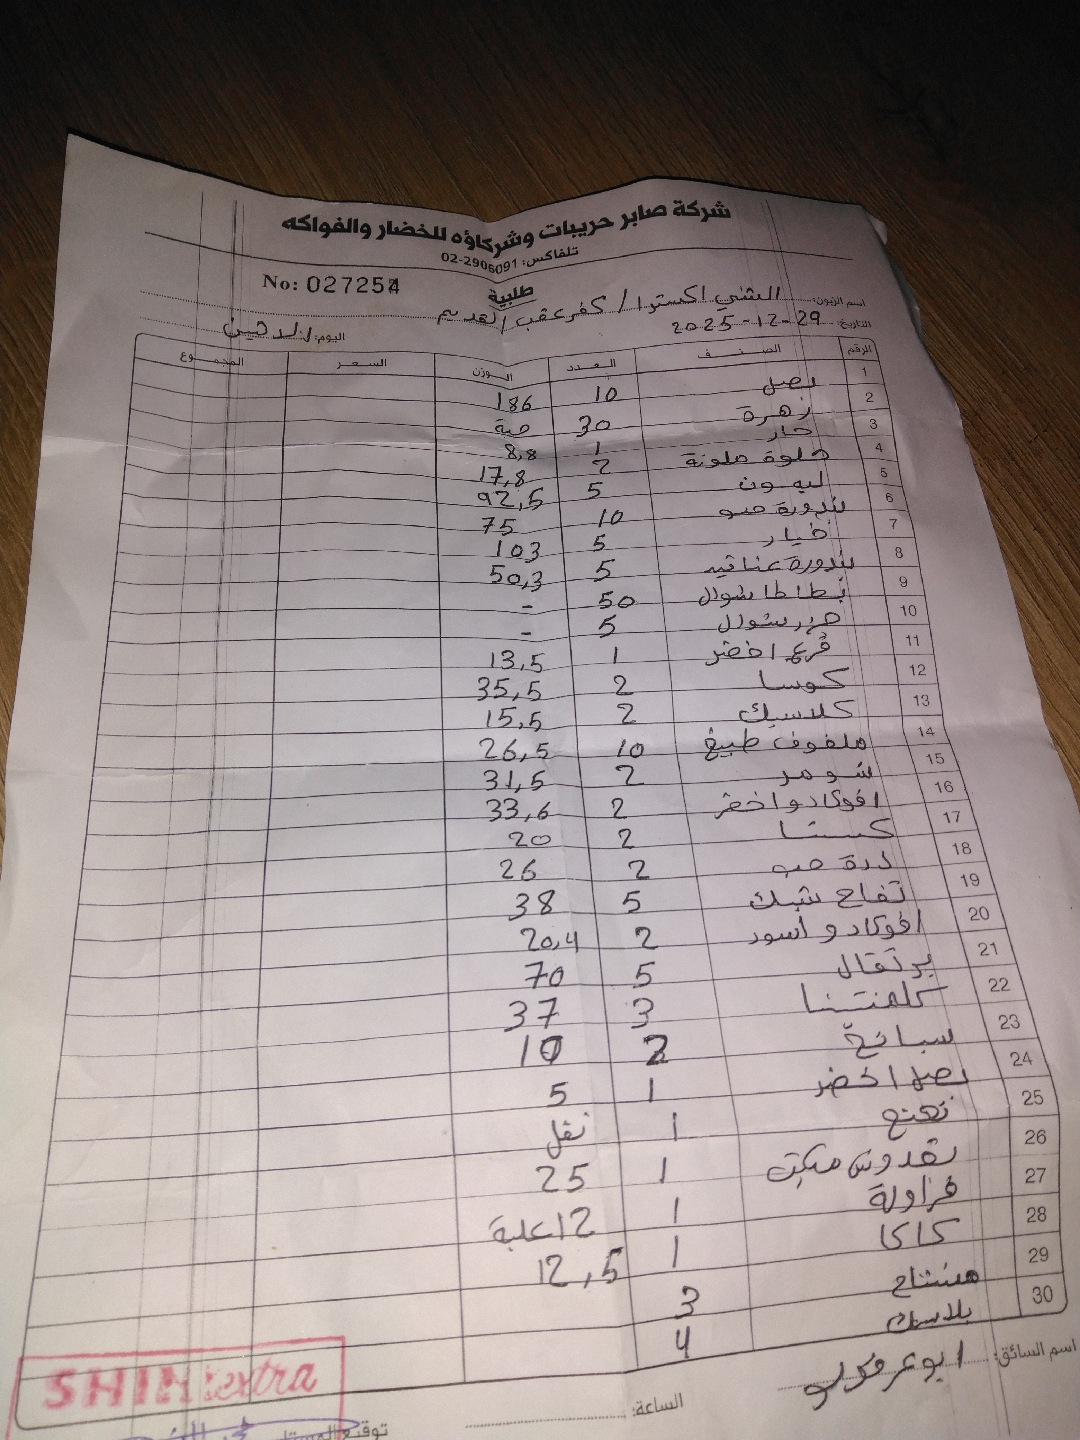 شركة صابر حريبات وشركاؤه للخضار والفواكه
تلفاكس: 02-2906091
No: 027254
طلبية
اسم الزبون: الشني اكسترا / كفر عقب القديم
التاريخ: 29-12-2025 اليوم: الاثنين
الرقم الصنف العدد الوزن السعر المجموع
1 بصل 10 186
2 زهرة 30 حبة
3 حار 1 8,8
4 حلوة ملونة 2 17,8
5 ليمون 5 92,5
6 بندورة حب 10 75
7 خيار 5 103
8 بندورة عناقيد 5 50,3
9 بطاطا شوال 50 -
10 جزر شوال 5 -
11 قرع اخضر 1 13,5
12 كوسا 2 35,5
13 كلاسيك 2 15,5
14 ملفوف طبيخ 10 26,5
15 شومر 2 31,5
16 افوكادو اخضر 2 33,6
17 كستنا 2 20
18 ذرة حب 2 26
19 تفاح شبك 5 38
20 افوكادو اسود 2 20,4
21 برتقال 5 70
22 كلمنتينا 3 37
23 سبانخ 2 10
24 بصل اخضر 1 5
25 نعنع 1 نقل
26 بقدونس 1 25
27 فراولة 1 12 علبة
28 كاكا 1 12,5
29 مشتاح 3
30 بلاستك 4
اسم السائق: ابو عمر
الساعة:
توقيع المستلم
SHINI extra